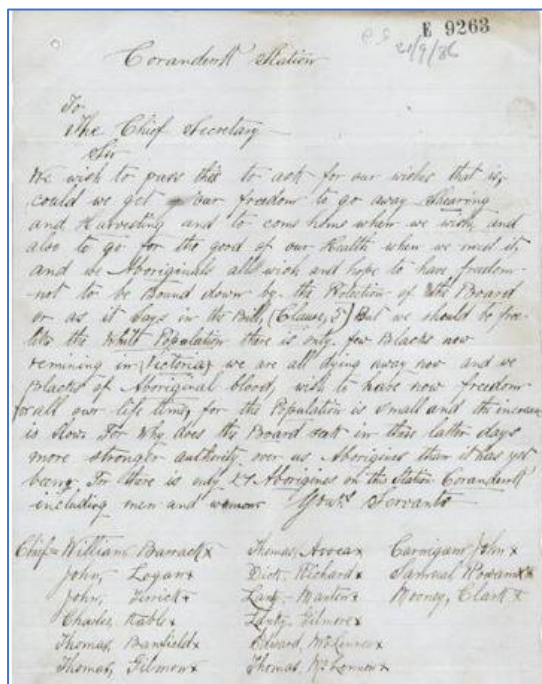 E 9263
21/9/86
Coranderrk Station
To
The Chief Secretary
Sir
We wish to pass this to ask for our wishes that is,
could we get our freedom to go away Shearing
and Harvesting and to come home when we wish and
also to go for the good of our Health when we need it
and we Aboriginals all wish and hope to have freedom
not to be bound down by the Protection of the Board
or as it says in the Bill, (Clause, 5) But we should be free
like the White Population there is only few Blacks now
remining in Victoria, we are all dying away now and we
Blacks of Aboriginal blood, wish to have now freedom
for all our life time, for the Population is small and the increase
is slow. For why does the Board seek in these latter days
more stronger authority over us Aborigines than it has yet
been. For there is only 27 Aborigines on this Station Coranderrk
including men and women Yours Servants
Chief = William Barrack x Thomas, Avoca x Carnigam John x
John, Logan x Dick, Richard x Samual Rowan x
John, Terrick x Lanky- Manton x Mooney, Clark x
Charles, Kable x Lanky, Gilmore x
Thomas, Banfield x Edward, McLennon x
Thomas, Gilmore x Thomas, McLennon x